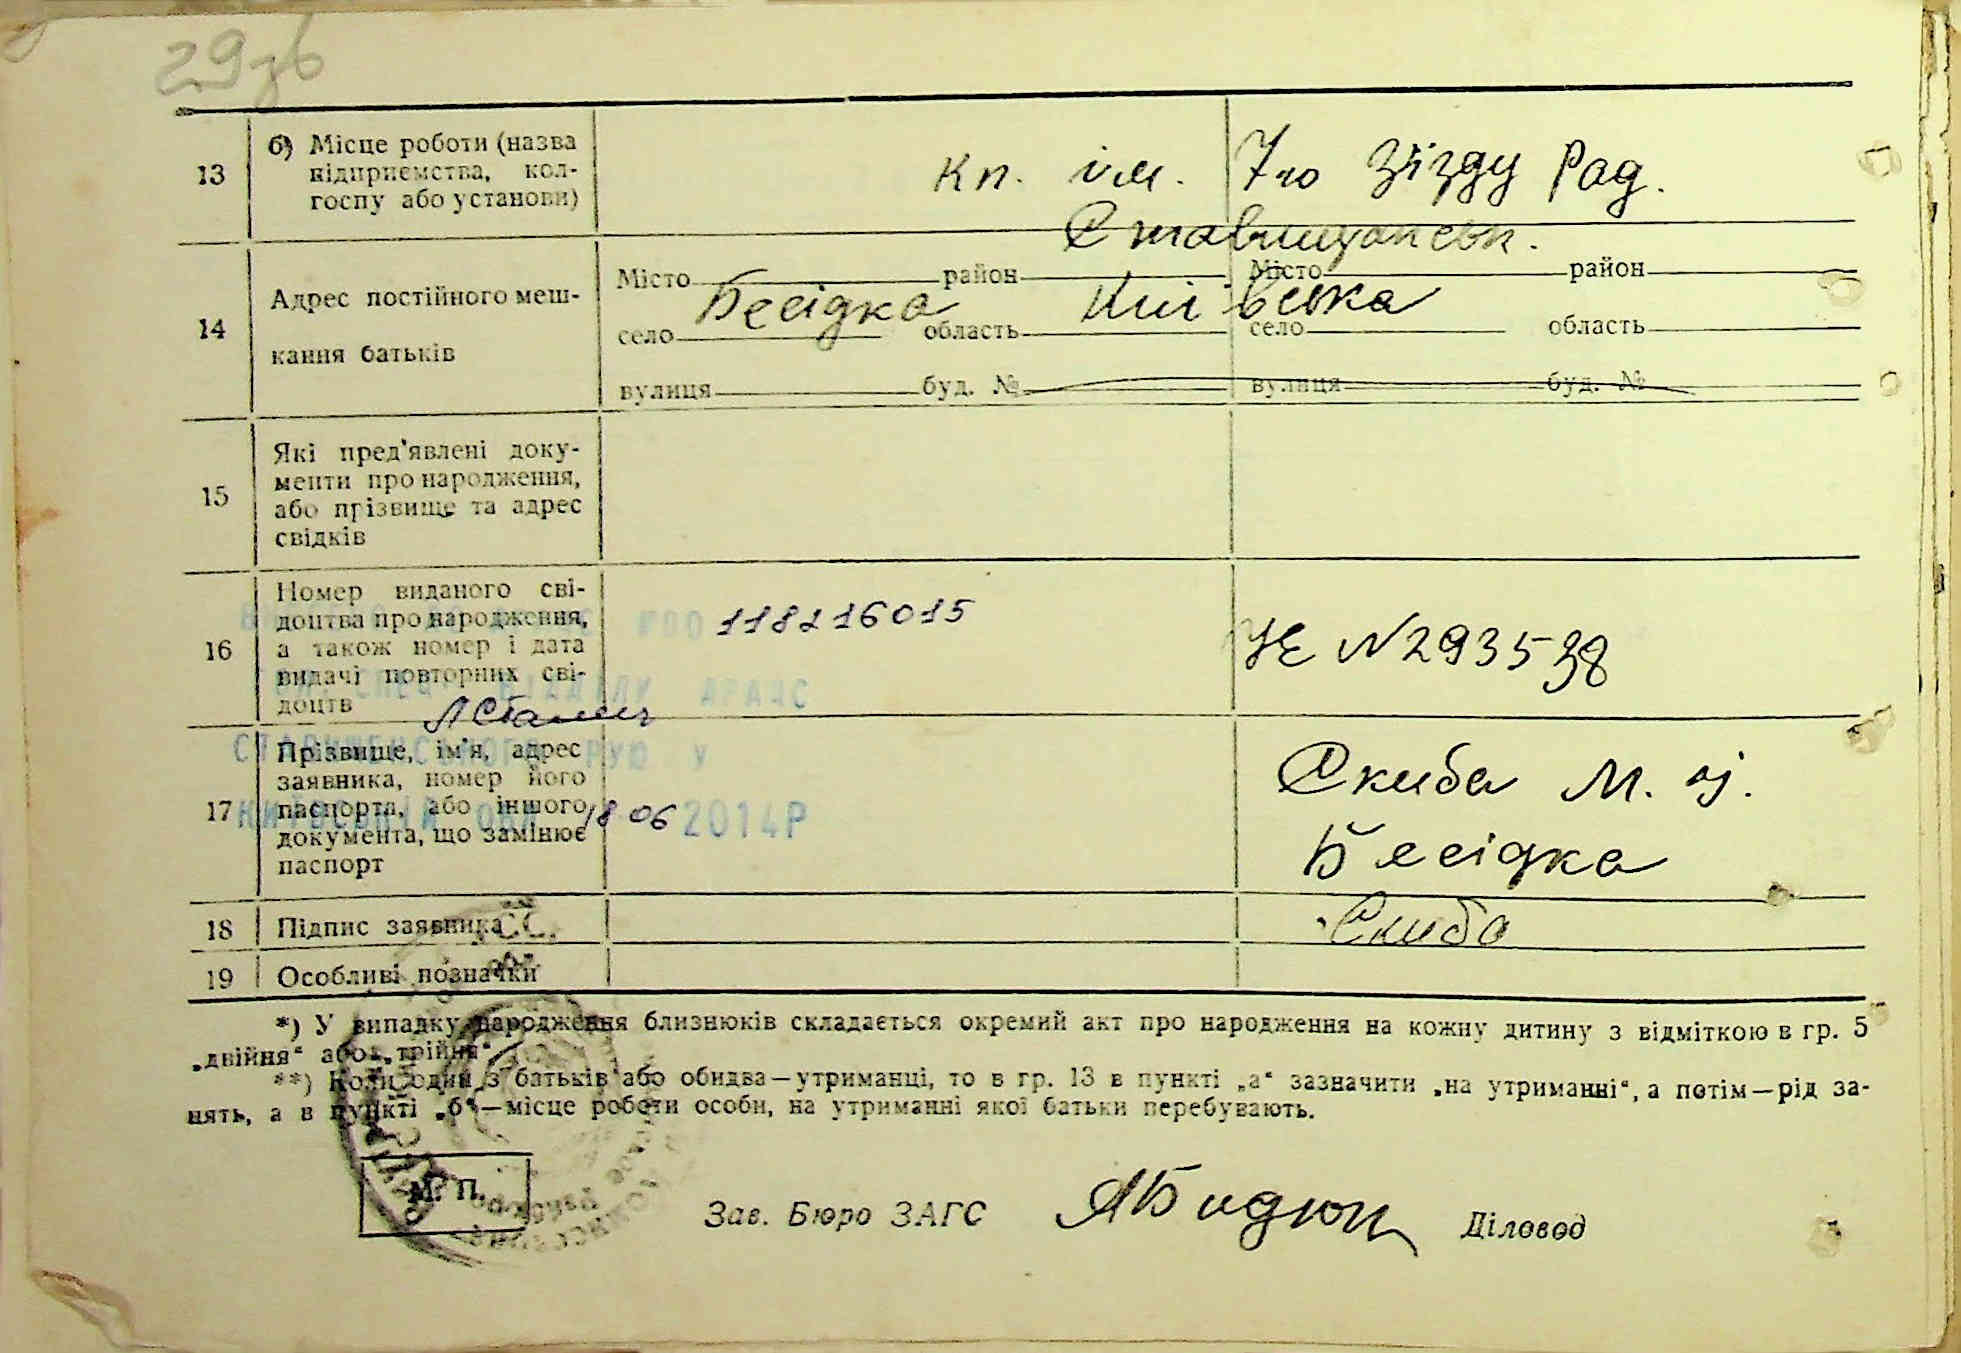 29зв
13
б) Місце роботи (назва
підприємства, кол-
госпу або установи)
Кп. ім. 7го Зїзду Рад.
Ставищанськ.
14
Адрес постійного меш-
кання батьків
Місто район Місто район
село Бесідка область Київська село область
вулиця буд. № вулиця буд. №
15
Які пред'явлені доку-
менти про народження,
або прізвище та адрес
свідків
16
Номер виданого сві-
доцтва про народження,
а також номер і дата
видачі повторних сві-
доцтв
118216015
№ 293538
ВІДДІЛУ ДРАЦС
РУЮ У
18 06 2014Р
17
Прізвище, ім'я, адрес
заявника, номер його
паспорта, або іншого
документа, що замінює
паспорт
Скиба М.
Бесідка
18
Підпис заявника
Скиба
19
Особливі позначки
*) У випадку народження близнюків складається окремий акт про народження на кожну дитину з відміткою в гр. 5
„двійня“ або „трійня“.
**) Коли один з батьків або обидва—утриманці, то в гр. 13 в пункті „а“ зазначити „на утриманні“, а потім—рід за-
нять, а в пункті „б“—місце роботи особи, на утриманні якої батьки перебувають.
М. П.
Зав. Бюро ЗАГС
Діловод